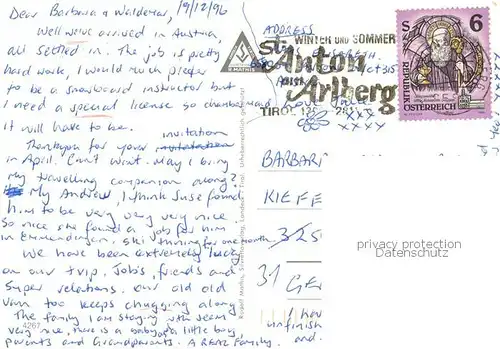 Dear Barbara & Waldemar, 19/12/96
Well we've arrived in Austria,
all settled in. The job is pretty
hard work, I would much prefer
to be a snowboard instructor but
I need a special license so chambermaid
it will have to be.
invitation
Thankyou for your
in April. Can't wait. May I bring
my travelling companion along?
My Andrew, I think Suse found
him to be very very very nice.
So nice she found a job for him
in Emmendingen, ski thinning for one month.
We have been extremely lucky
on our trip. Job's, friends and
super relations. Our old old
van too keeps chugging along
The family I am staying with seem
very nice, there is a baby, a little boy,
parents and Grandparents. A REAL Family.
4267
Rudolf Mathis, Silvretta-Verlag, Landeck - Tirol. Urheberrechtlich geschützt
R. MATHIS
ADDRESS
WINTER UND SOMMER
St. Anton
am
Arlberg
TIROL
xxxx
S 6
REPUBLIK
ÖSTERREICH
BARBAR
KIEFE
325
31 GE
I have
unfinish
and.
privacy protection
Datenschutz